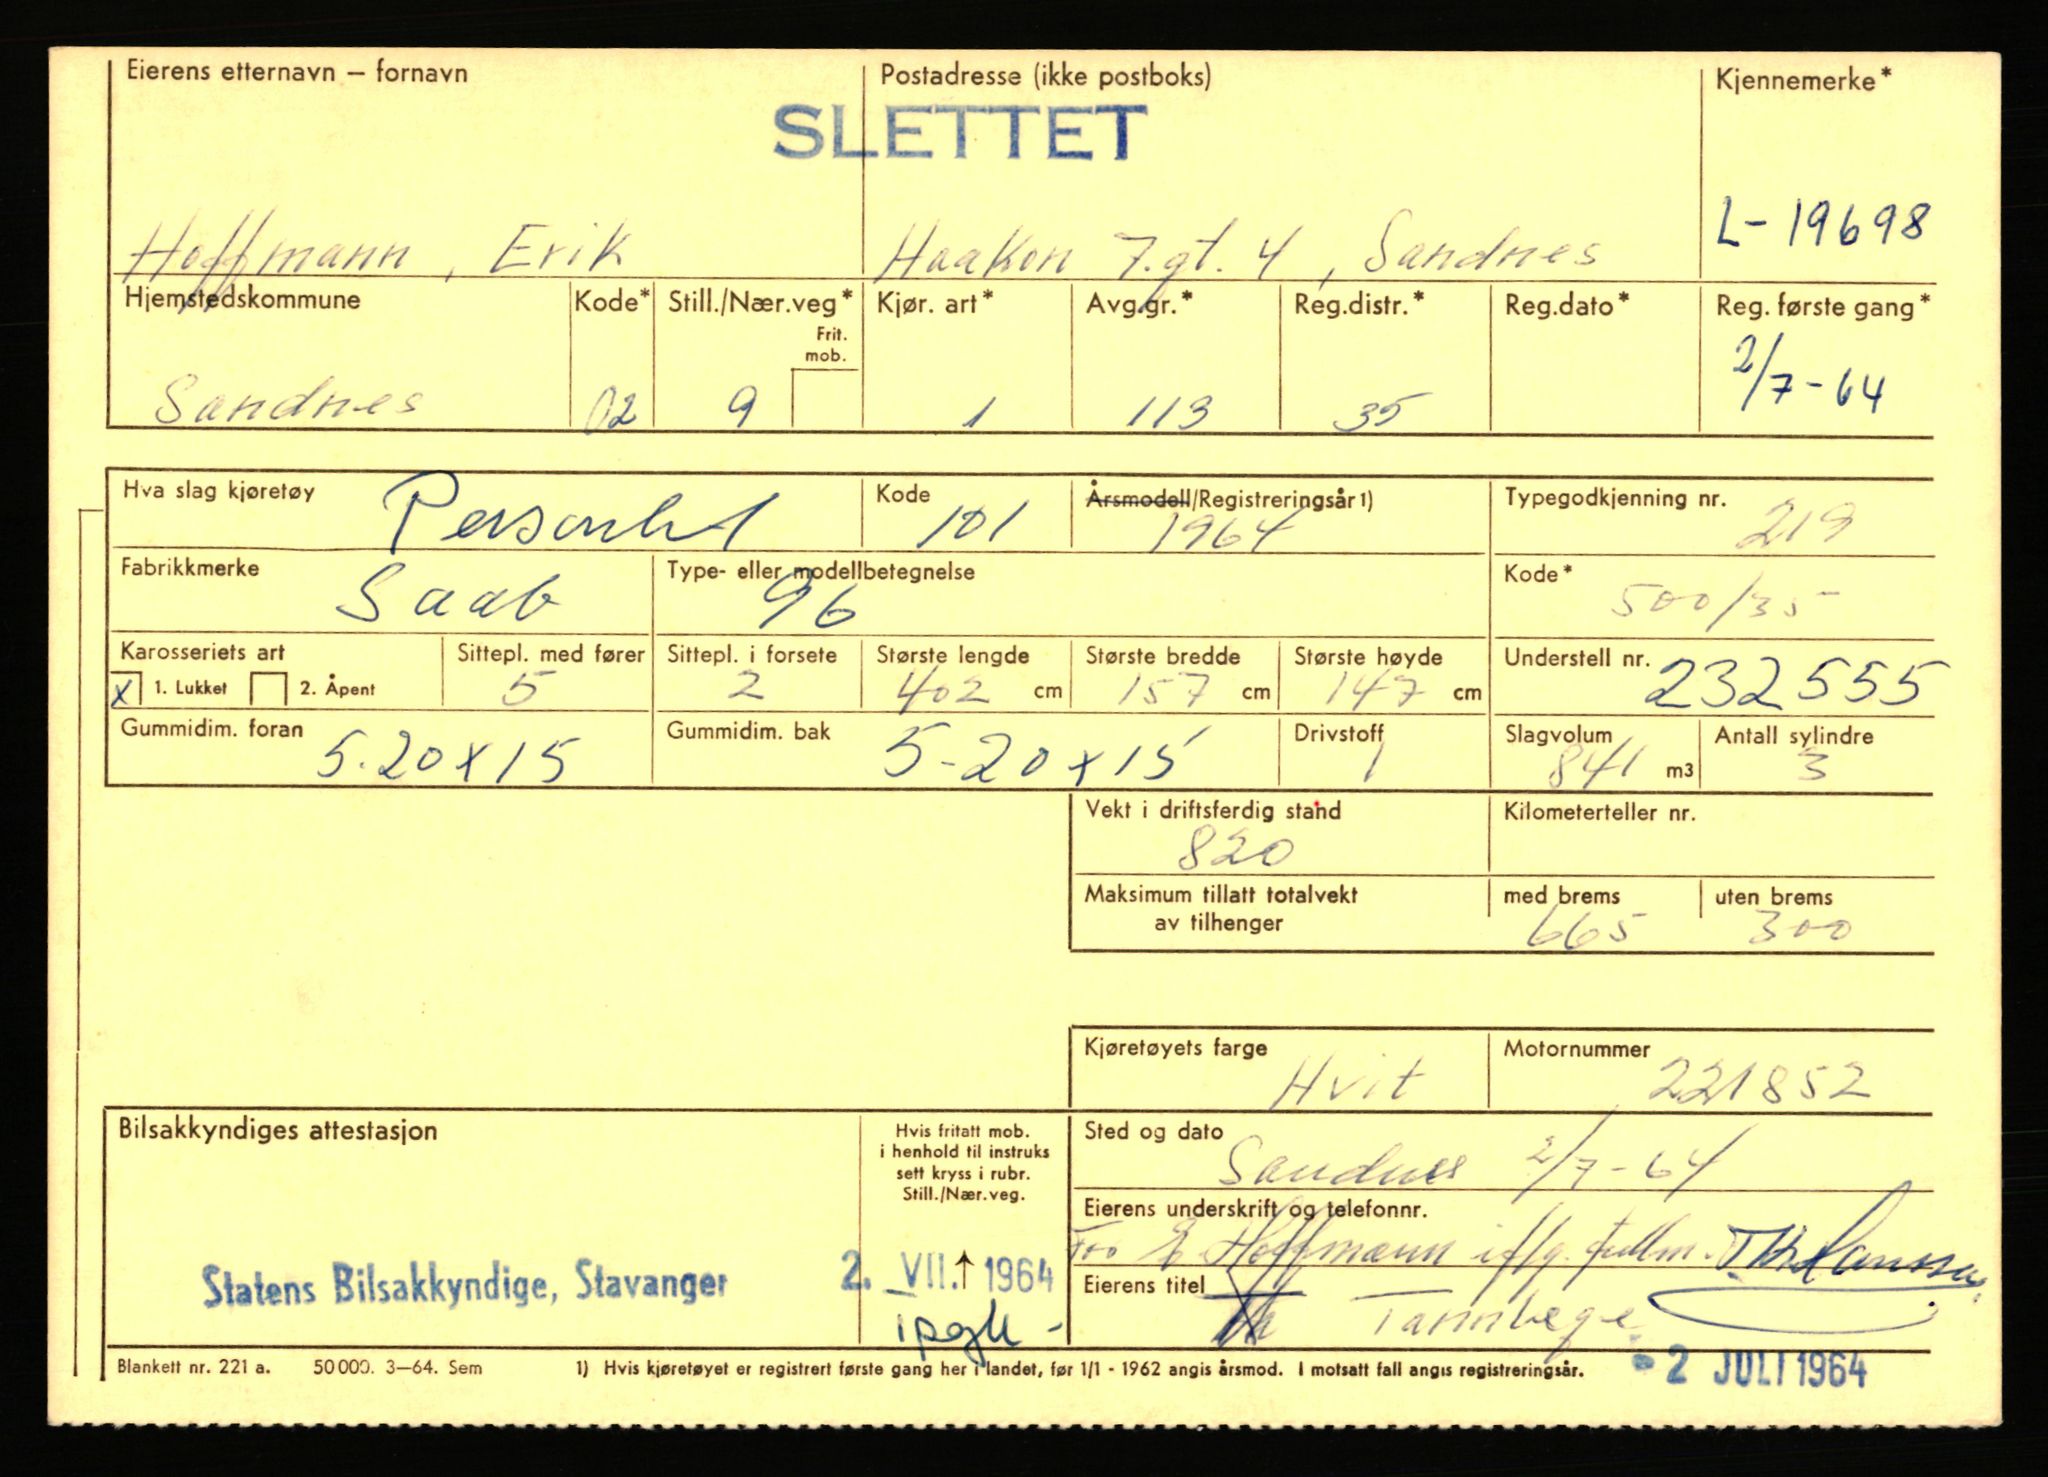 Eierens etternavn – fornavn Postadresse (ikke postboks) Kjennemerke*
SLETTET
Hoffmann, Erik Haakon 7.gt. 4, Sandnes L-19698
Hjemstedskommune Kode* Still./Nær.veg* Kjør. art* Avg.gr.* Reg.distr.* Reg.dato* Reg. første gang*
Frit.
mob.
Sandnes 02 9 1 113 35 2/7-64
Hva slag kjøretøy Kode Årsmodell/Registreringsår 1) Typegodkjenning nr.
Personbil 101 1964 219
Fabrikkmerke Type- eller modellbetegnelse Kode*
Saab 96 500/35
Karosseriets art Sittepl. med fører Sittepl. i forsete Største lengde Største bredde Største høyde Understell nr.
x 1. Lukket 2. Åpent 5 2 402 cm 157 cm 147 cm 232555
Gummidim. foran Gummidim. bak Drivstoff Slagvolum Antall sylindre
5.20x15 5-20x15 1 841 m3 3
Vekt i driftsferdig stand Kilometerteller nr.
820
Maksimum tillatt totalvekt med brems uten brems
av tilhenger 665 300
Kjøretøyets farge Motornummer
Hvit 221852
Bilsakkyndiges attestasjon Hvis fritatt mob. Sted og dato
i henhold til instruks
sett kryss i rubr.
Still./Nær.veg.
Sandnes 2/7-64
Eierens underskrift og telefonnr.
For E. Hoffmann iflg. fullm.
Statens Bilsakkyndige, Stavanger 2. VII.↑ 1964
Eierens titel
Tannlege
Blankett nr. 221 a. 50 000. 3–64. Sem 1) Hvis kjøretøyet er registrert første gang her i landet, før 1/1 - 1962 angis årsmod. I motsatt fall angis registreringsår.
- 2 JULI 1964